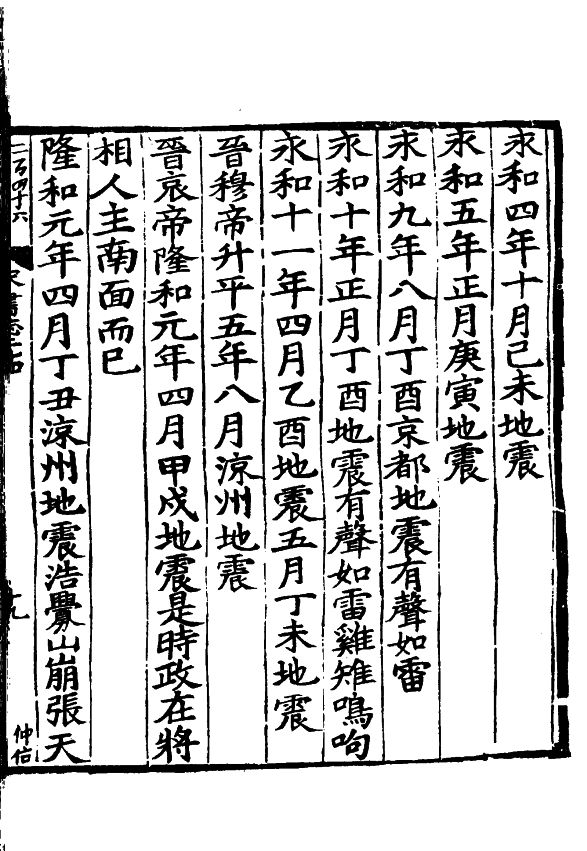 永和四年十月己未地震
永和五年正月庚寅地震
永和九年八月丁酉京都地震有聲如雷
永和十年正月丁酉地震有聲如雷雞雉鳴呴
永和十一年四月乙酉地震五月丁未地震
晉穆帝升平五年八月涼州地震
晉哀帝隆和元年四月甲戌地震是時政在將
相人主南面而已
隆和元年四月丁丑涼州地震浩亹山崩張天
二百四十六
十九
仲信